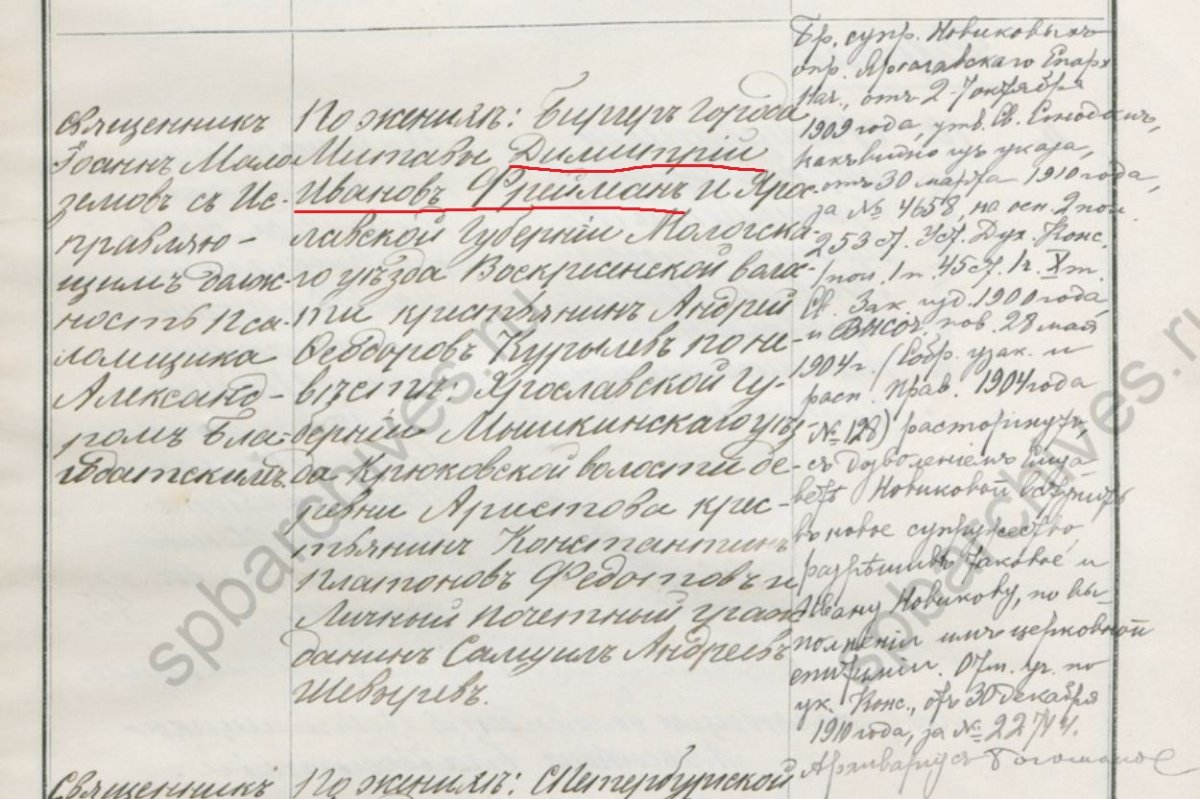 Священникъ
Іоаннъ Мало
земовъ съ Ис-
правляю-
щимъ долж-
ность Пса-
ломщика
Александ-
ромъ Бла-
годатскимъ
По женихѣ: Биргеръ города
Митавы Димитрій
Ивановъ Фрейманъ и Яро-
славской Губерніи Мологска-
го уѣзда Воскресенской воло-
сти крестьянинъ Андрей
Ѳеодоровъ Курылевъ по не-
вѣстѣ: Ярославской Гу-
берніи Мышкинскаго уѣз-
да Крюковской волости де-
ревни Аристова крес-
тьянинъ Константинъ
Платоновъ Федотовъ и
Личный почетный граж
данинъ Самуилъ Андреевъ
Шевыревъ.
Бр. супр. Новиковыхъ
опр. Ярославскаго Епарх
Нач., отъ 2-7 октября
1909 года, утв. Св. Синодомъ,
какъ видно изъ указа,
отъ 30 марта 1910 года,
за № 4658, на осн. 2 пол.
253 ст. Уст. Дух. Конс.
1 пол. 1 п. 45 ст. 1 ч. X т.
Св. Зак. изд. 1900 года,
и Высоч. пов. 28 мая
1904 г. (Собр. узак. и
расп. Прав. 1904 года
№ 128) расторгнутъ
съ дозволеніемъ Елиза
ветѣ Новиковой вступить
въ новое супружество,
разрѣшивъ таковое и
Ивану Новикову, по вы-
полненіи имъ церковной
епитиміи. Отм. уч. по
ук. Конс., отъ 30 декабря
1910 года, за № 22744.
Архиваріусъ
Священникъ
По женихѣ: С.Петербургской
spbarchives.ru
spbarchives.ru